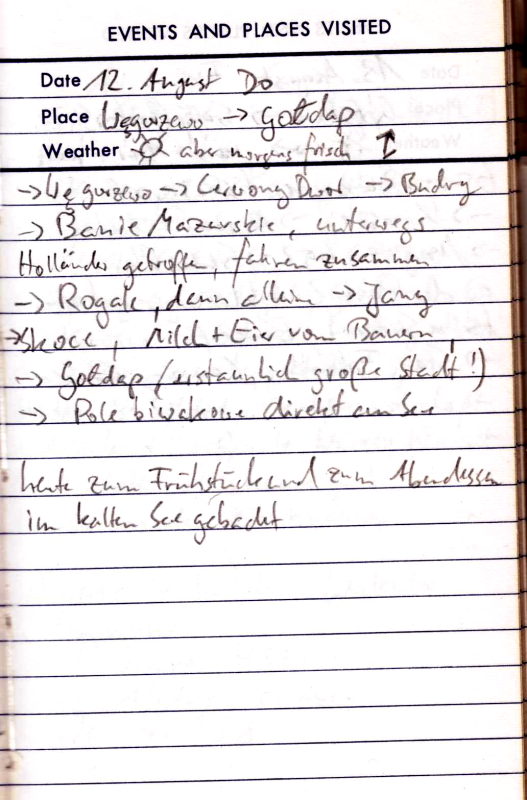 EVENTS AND PLACES VISITED
Date 12. August Do
Place Węgorzewo → Gołdap
Weather aber morgens frisch
→ Węgorzewo → Czerwony Dwór → Budry
→ Banie Mazurskie, unterwegs
Holländer getroffen, fahren zusammen
→ Rogale, dann allein → Jany
→ Skocz, Milch + Eier vom Bauern,
→ Gołdap (erstaunlich große Stadt!)
→ Pole biwakowe direkt am See
heute zum Frühstück und zum Abendessen
im kalten See gebadet